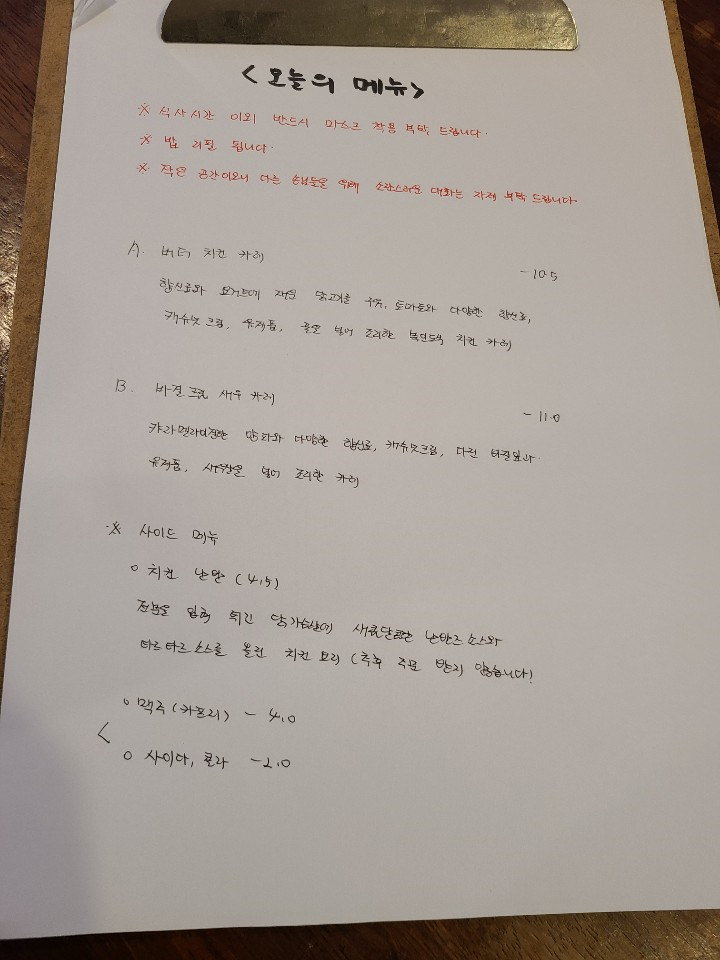 <오늘의 메뉴>
※ 식사시간 이외 반드시 마스크 착용 부탁 드립니다.
※ 밥 리필 됩니다.
※ 작은 공간이오니 다른 손님들을 위해 소란스러운 대화는 자제 부탁 드립니다.
A. 버터 치킨 카레 - 10.5
향신료와 요거트에 재운 닭고기를 구워, 토마토와 다양한 향신료,
캐슈넛 크림, 유제품, 꿀을 넣어 조리한 부드러운 치킨 카레
B. 바질 크림 새우 카레 - 11.0
캬라멜라이징한 양파와 다양한 향신료, 캐슈넛크림, 다진 바질잎과
유제품, 새우살을 넣어 조리한 카레
※ 사이드 메뉴
○ 치킨 난반 (4.5)
전분을 입혀 튀긴 닭가슴살에 새콤달콤한 난반즈 소스와
타르타르소스를 올린 치킨 요리 (추후 주문 받지 않습니다!
○ 맥주 (카프리) - 4.0
<
○ 사이다, 콜라 - 2.0